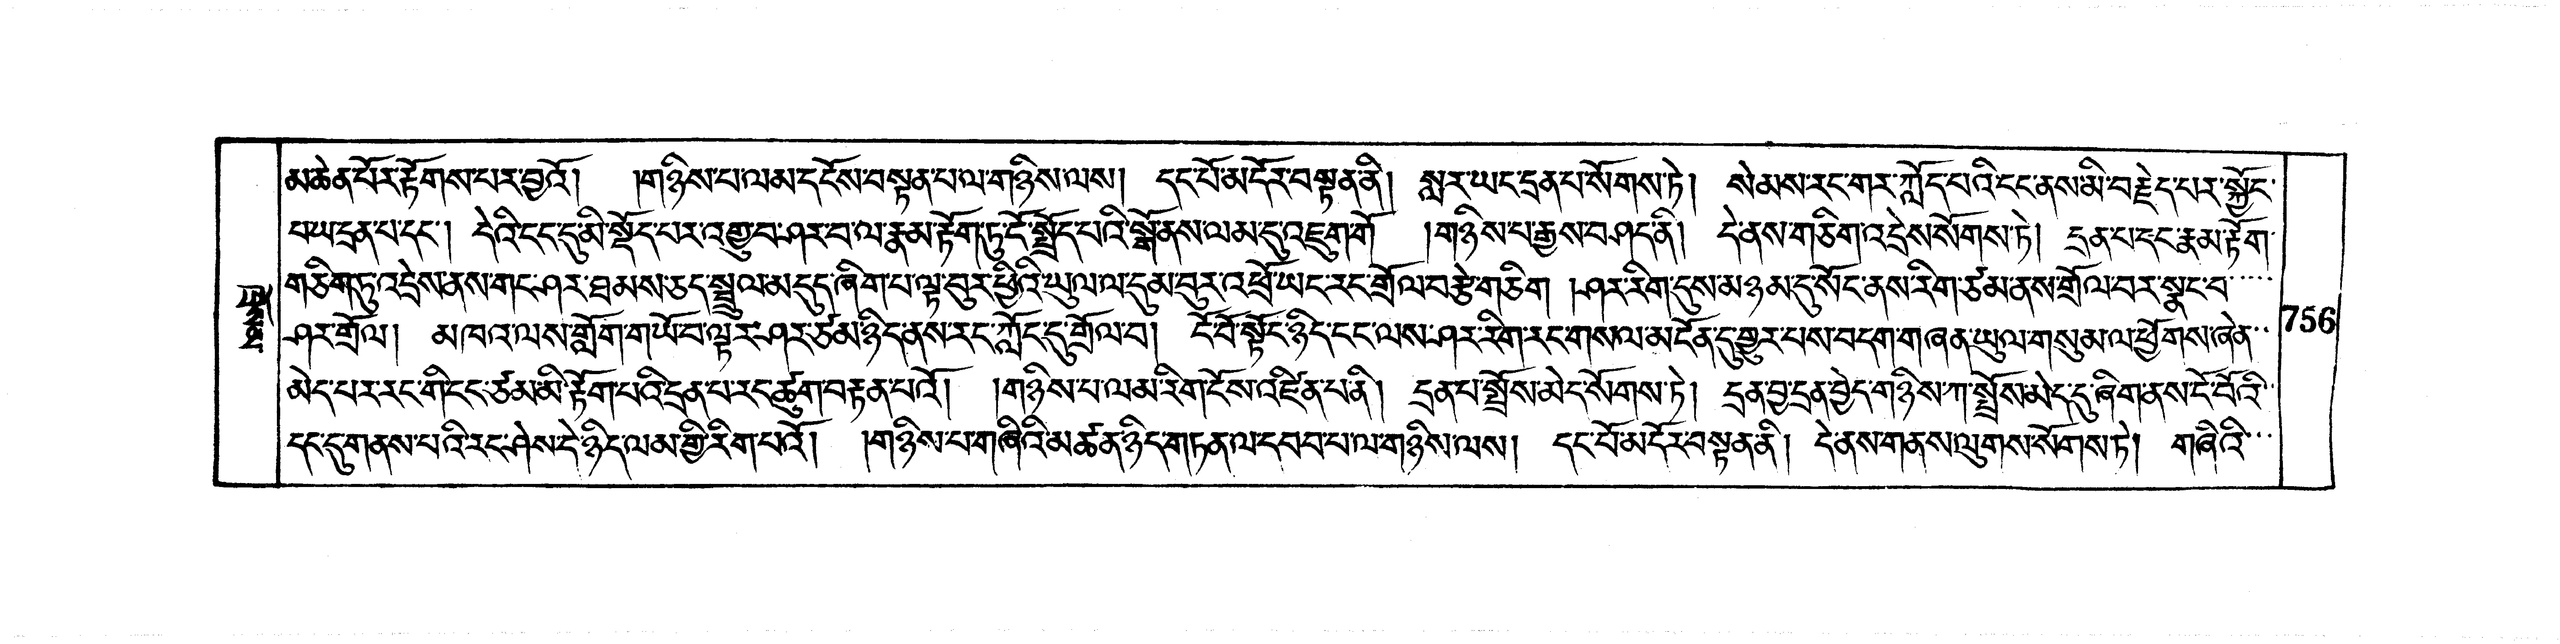 མཆེན་པོར་རྟོགས་པར་བྱའོ། །གཉིས་པ་ལམ་དངོས་བསྟན་པ་ལ་གཉིས་ལས། དང་པོ་མདོར་བསྟན་ནི། སླར་ཡང་དྲན་པ་སོགས་ཏེ། སེམས་རང་གར་ཀློད་པའི་ངང་ནས་མི་བརྗེད་པར་སྐྱོང་
བཡ་དྲན་པ་དང་། དེའི་ངང་དུ་མི་སྡོད་པར་འགྱུ་བ་ཤར་བ་ལ་རྣམ་རྟོག་ཏུ་ངོ་སྤྲོད་པའི་སྒོ་ནས་ལམ་དུ་འཇུག་གོ །གཉིས་པ་རྒྱས་བཤད་ནི། དེ་ནས་གཅིག་འདྲེས་སོགས་ཏེ། དྲན་པ་དང་རྣམ་རྟོག་
གཅིག་ཏུ་འདྲེས་ནས་གང་ཤར་ཐམས་ཅད་སྦྲུལ་མདུད་ཞིག་པ་ལྟ་བུར་ཕྱིའི་ཡུལ་ལ་དུམ་བུར་འཕྲོ་ཡང་རང་གྲོལ་བརྩེ་གཅིག །ཤར་རིག་དུས་མཉམ་དུ་སོང་ནས་རིག་ཙམ་ནས་གྲོལ་བར་སྣང་བ་
ཤར་གྲོལ། མཁའ་ལས་གློག་གཡོ་བ་ལྟར་ཤར་ཙམ་ཉིད་ནས་རང་ཀློང་དུ་གྲོལ་བ། ངོ་བོ་སྟོང་ཉིད་ངང་ལས་ཤར་རིག་རང་གསལ་མངོན་དུ་གྱུར་པས་བདག་གཞན་ཡུལ་གསུམ་ལ་ཕྱོགས་ཞེན་
མེད་པར་རང་གི་ངང་ཙམ་མི་རྟོག་པའི་དྲན་པ་རང་ཚུག་བརྟན་པའོ། །གཉིས་པ་ལམ་རིག་ངོས་འཛིན་པ་ནི། དྲན་པ་སྤྲོས་མེད་སོགས་ཏེ། དྲན་བྱ་དྲན་བྱེད་གཉིས་ཀ་སྤྲོས་མེད་དུ་ཞིག་ནས་ངོ་བོའི་
དང་དུ་གནས་པའི་རང་ཤེས་དེ་ཉིད་ལམ་གྱི་རིག་པའོ། །གཉིས་པ་གཞིའི་མཚན་ཉིད་གཏན་ལ་དབབ་པ་ལ་གཉིས་ལས། དང་པོ་མདོར་བསྟན་ནི། དེ་ནས་གནས་ལུགས་སོགས་ཏེ། གཞིའི་
756